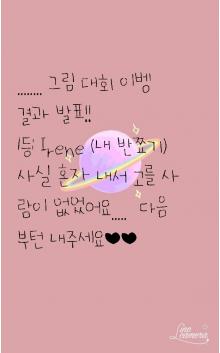 ........ 그림 대회 이벵
결과 발표!!
1등 Irene (내 반쪼기)
사실 혼자 내서 고를 사
람이 없었어요..... 다음
부턴 내주세요♥♥
Line
camera